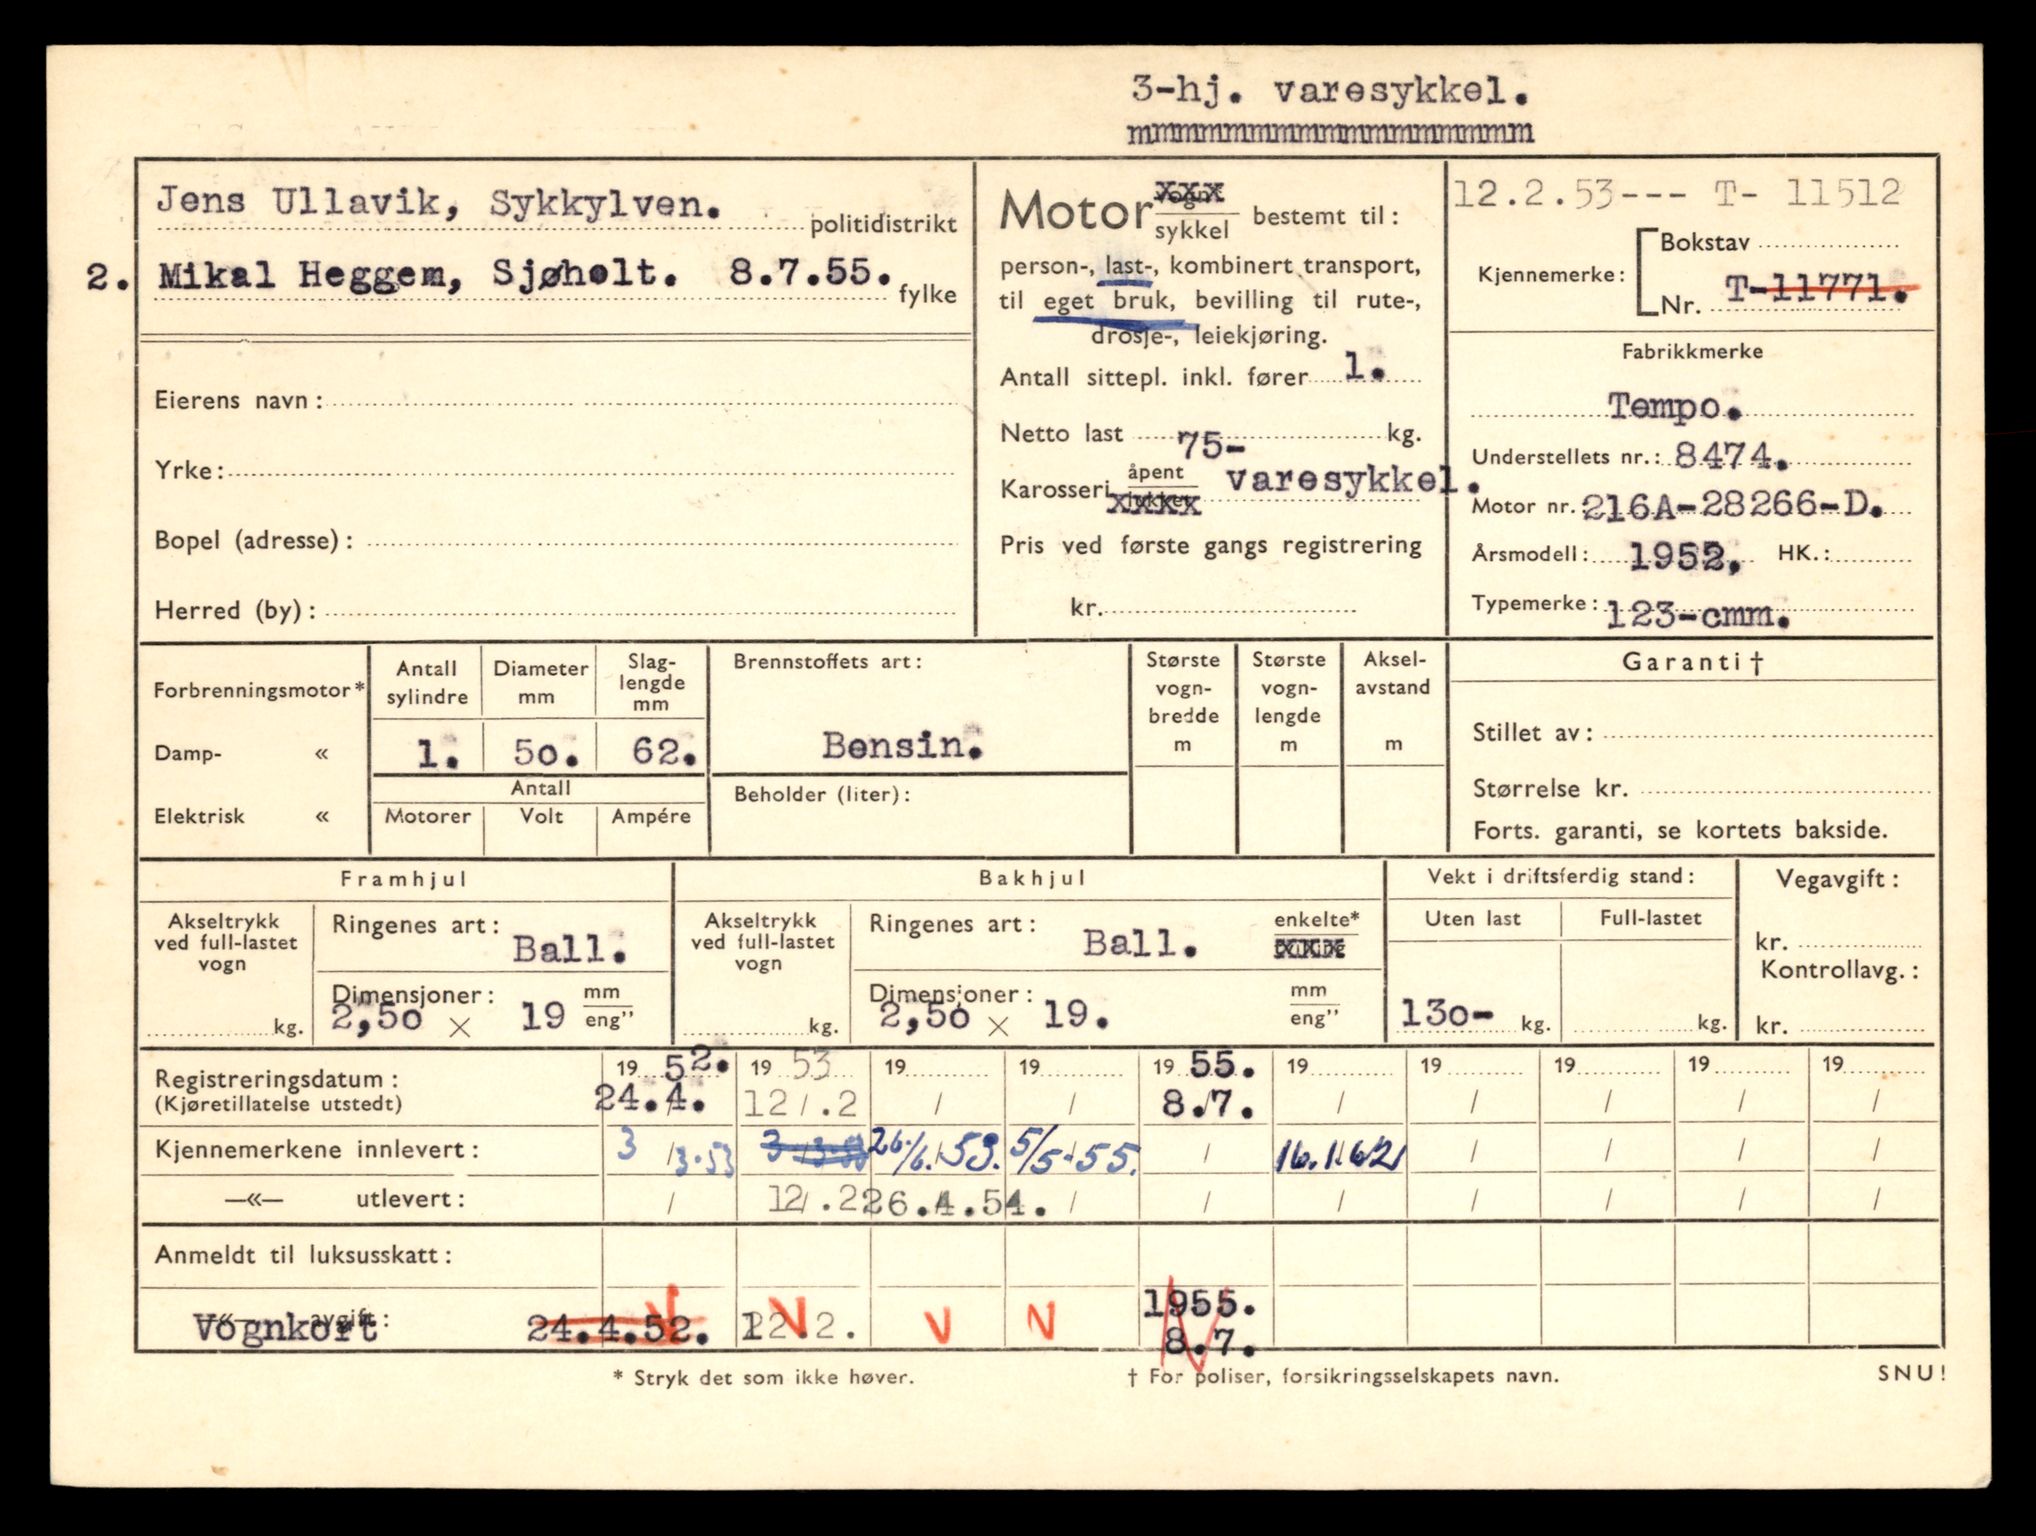 3-hj. varesykkel.
mmmmmmmmmmmmmmmmm
Jens Ullavik, Sykkylven.
politidistrikt
2. Mikal Heggem, Sjøholt. 8.7.55.
fylke
Eierens navn:
Yrke:
Bopel (adresse):
Herred (by):
Motor vogn xxx
sykkel bestemt til:
person-, last-, kombinert transport,
til eget bruk, bevilling til rute-,
drosje-, leiekjøring.
Antall sittepl. inkl. fører 1.
Netto last 75- kg.
Karosseri åpent
lukket xxxx varesykkel.
Pris ved første gangs registrering
kr.
12.2.53--- T- 11512
Kjennemerke: Bokstav
Nr. T-11771.
Fabrikkmerke
Tempo.
Understellets nr.: 8474.
Motor nr.: 216A-28266-D.
Årsmodell: 1952, HK.:
Typemerke: 123-cmm.
Forbrenningsmotor*
Damp- «
Elektrisk «
Antall sylindre
Diameter mm
Slag-lengde mm
1. 50. 62.
Antall
Motorer Volt Ampére
Brennstoffets art:
Bensin.
Beholder (liter):
Største vogn-bredde m
Største vogn-lengde m
Aksel-avstand m
Garanti †
Stillet av:
Størrelse kr.
Forts. garanti, se kortets bakside.
Framhjul
Akseltrykk ved full-lastet vogn
kg.
Ringenes art:
Ball.
Dimensjoner:
2,50 × 19 mm
eng"
Bakhjul
Akseltrykk ved full-lastet vogn
kg.
Ringenes art:
Ball.
enkelte*
xxxx
Dimensjoner:
2,50 × 19. mm
eng"
Vekt i driftsferdig stand:
Uten last Full-lastet
130- kg. kg.
Vegavgift:
kr.
Kontrollavg.:
kr.
Registreringsdatum: 19 52. 19 53 19 19 19 55. 19 19 19 19 19
(Kjøretillatelse utstedt) 24./4. 12/.2 / / 8./7. / / / / /
Kjennemerkene innlevert: 3/3-53 3/3-53 26/6.53. 5/5-55. / 16.1.62 / / / /
—«— utlevert: / 12/.2 26.4.54. / / / / / / /
Anmeldt til luksusskatt:
—«— avgift:
Vognkort 24.4.52. V 12.2. V V V 1955.
8.7. V
* Stryk det som ikke høver.
† For poliser, forsikringsselskapets navn.
SNU!